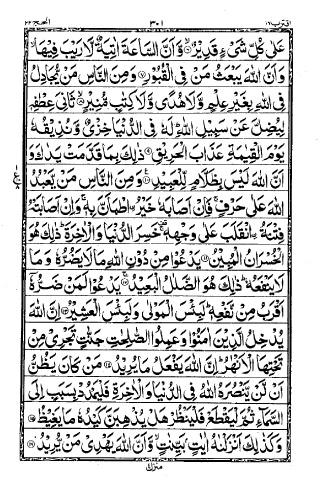 اقترب ١٧ ٣٠١ الحج ٢٢
عَلٰى كُلِّ شَىْءٍ قَدِيْرٌ ۙ﴿۶﴾ وَّاَنَّ السَّاعَةَ اٰتِيَةٌ لَّا رَيْبَ فِيْهَا ۙ
وَاَنَّ اللّٰهَ يَبْعَثُ مَنْ فِى الْقُبُوْرِ ﴿۷﴾ وَمِنَ النَّاسِ مَنْ يُّجَادِلُ
فِى اللّٰهِ بِغَيْرِ عِلْمٍ وَّلَا هُدًى وَّلَا كِتٰبٍ مُّنِيْرٍ ۙ﴿۸﴾ ثَانِىَ عِطْفِهٖ
لِيُضِلَّ عَنْ سَبِيْلِ اللّٰهِ ؕ لَهٗ فِى الدُّنْيَا خِزْىٌ وَّنُذِيْقُهٗ
يَوْمَ الْقِيٰمَةِ عَذَابَ الْحَرِيْقِ ﴿۹﴾ ذٰلِكَ بِمَا قَدَّمَتْ يَدٰكَ وَ
اَنَّ اللّٰهَ لَيْسَ بِظَلَّامٍ لِّلْعَبِيْدِ ﴿۱۰﴾ وَمِنَ النَّاسِ مَنْ يَّعْبُدُ
اللّٰهَ عَلٰى حَرْفٍ ۚ فَاِنْ اَصَابَهٗ خَيْرُ ۨ اطْمَاَنَّ بِهٖ ۚ وَاِنْ اَصَابَتْهُ
فِتْنَةُ ۨ انْقَلَبَ عَلٰى وَجْهِهٖ ۚ خَسِرَ الدُّنْيَا وَالْاٰخِرَةَ ؕ ذٰلِكَ هُوَ
الْخُسْرَانُ الْمُبِيْنُ ﴿۱۱﴾ يَدْعُوْا مِنْ دُوْنِ اللّٰهِ مَا لَا يَضُرُّهٗ وَمَا
لَا يَنْفَعُهٗ ؕ ذٰلِكَ هُوَ الضَّلٰلُ الْبَعِيْدُ ۚ﴿۱۲﴾ يَدْعُوْا لَمَنْ ضَرُّهٗۤ
اَقْرَبُ مِنْ نَّفْعِهٖ ؕ لَبِئْسَ الْمَوْلٰى وَلَبِئْسَ الْعَشِيْرُ ﴿۱۳﴾ اِنَّ اللّٰهَ
يُدْخِلُ الَّذِيْنَ اٰمَنُوْا وَعَمِلُوا الصّٰلِحٰتِ جَنّٰتٍ تَجْرِىْ مِنْ
تَحْتِهَا الْاَنْهٰرُ ؕ اِنَّ اللّٰهَ يَفْعَلُ مَا يُرِيْدُ ﴿۱۴﴾ مَنْ كَانَ يَظُنُّ
اَنْ لَّنْ يَّنْصُرَهُ اللّٰهُ فِى الدُّنْيَا وَالْاٰخِرَةِ فَلْيَمْدُدْ بِسَبَبٍ اِلَى
السَّمَآءِ ثُمَّ لْيَقْطَعْ فَلْيَنْظُرْ هَلْ يُذْهِبَنَّ كَيْدُهٗ مَا يَغِيْظُ ﴿۱۵﴾
وَكَذٰلِكَ اَنْزَلْنٰهُ اٰيٰتٍ بَيِّنٰتٍ ۙ وَّاَنَّ اللّٰهَ يَهْدِىْ مَنْ يُّرِيْدُ ﴿۱۶﴾